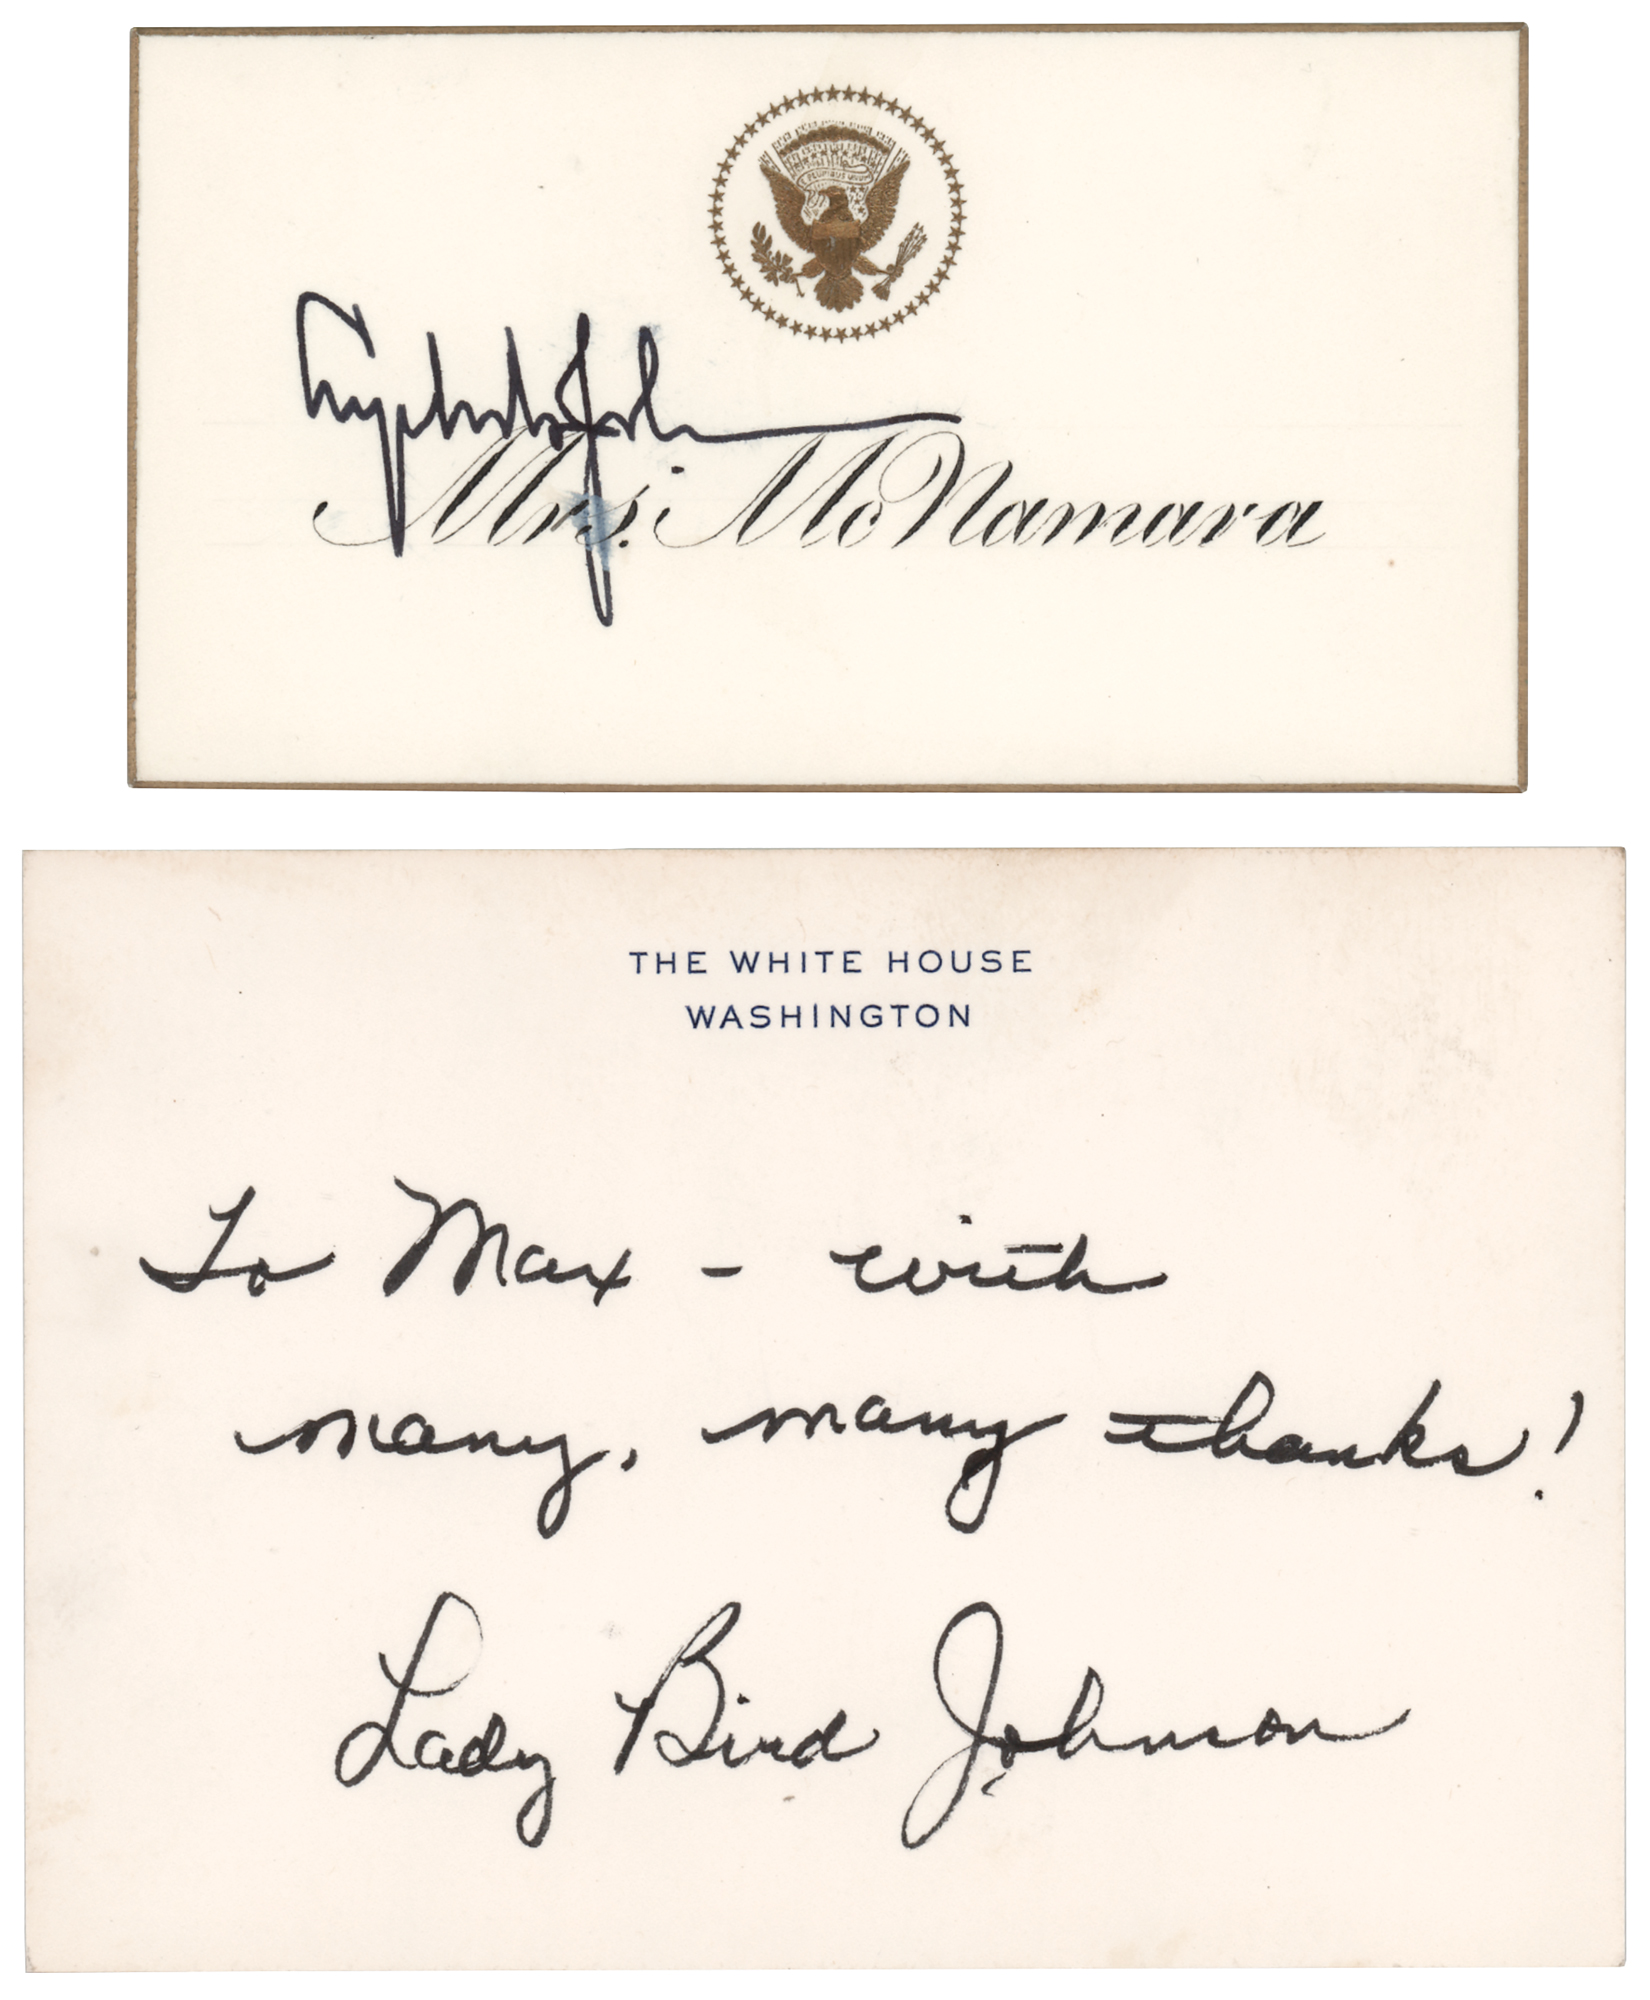 E PLURIBUS UNUM
Lyndon B. Johnson
Mrs. McNamara
THE WHITE HOUSE
WASHINGTON
To Max - with
many, many thanks!
Lady Bird Johnson